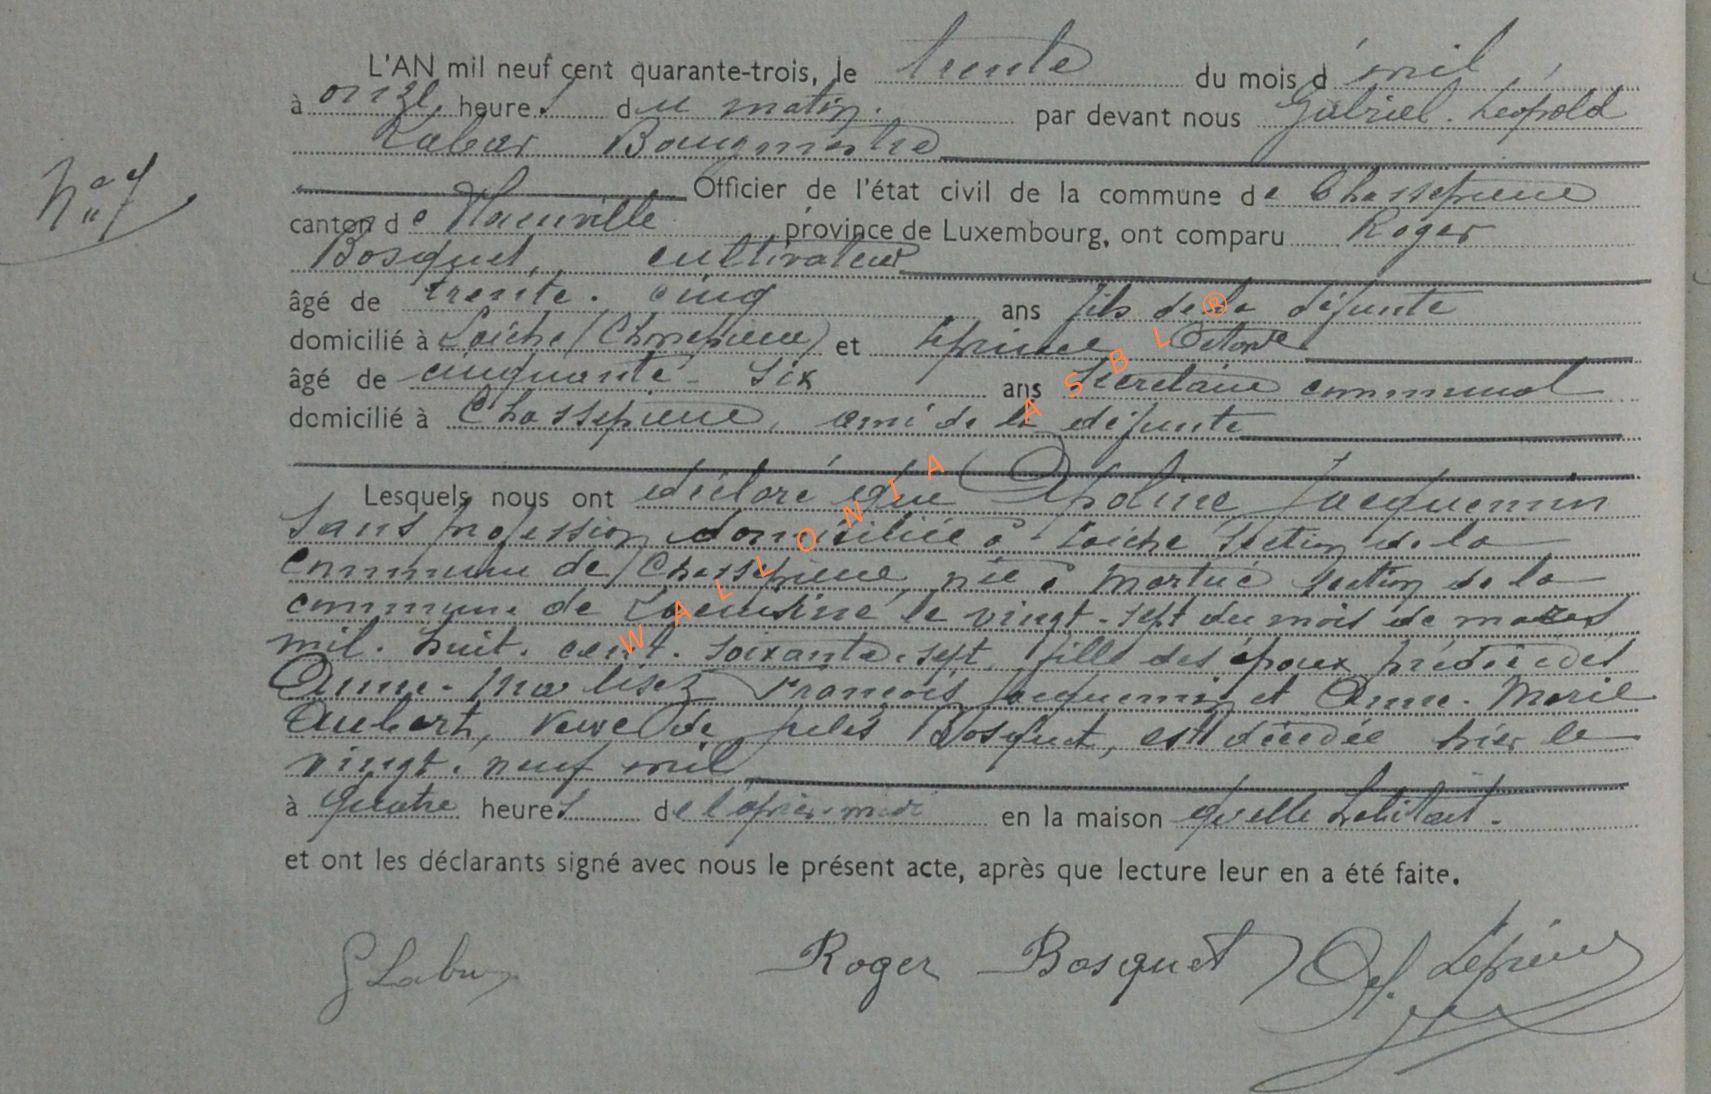 L'AN mil neuf cent quarante-trois, le trente du mois d'avril
à onze heures du matin. par devant nous Gabriel. Léopold
Bourgmestre
Nº 7
Officier de l'état civil de la commune de Chassepierre
canton de Florenville province de Luxembourg, ont comparu Roger
Bosquet, cultivateur
âgé de trente. cinq ans fils de la défunte
domicilié à Laiche (Chassepierre) et Lépineux
âgé de cinquante-six ans secrétaire communal
domicilié à Chassepierre, ami de la défunte
Lesquels nous ont déclaré que Apoline Jacquemin
sans profession domiciliée à Laiche section de la
commune de Chassepierre née à Martué section de la
commune de Lacuisine le vingt-sept du mois de mars
mil. huit. cent. soixante. sept. fille des époux prédécédés
François Jacquemin et Anne. Marie
Aubert, veuve de Jules Bosquet, est décédée hier le
vingt. neuf avril
à quatre heures de l'après-midi en la maison qu'elle habitait.
et ont les déclarants signé avec nous le présent acte, après que lecture leur en a été faite.
Roger Bosquet
WALLONIA ASBL ®